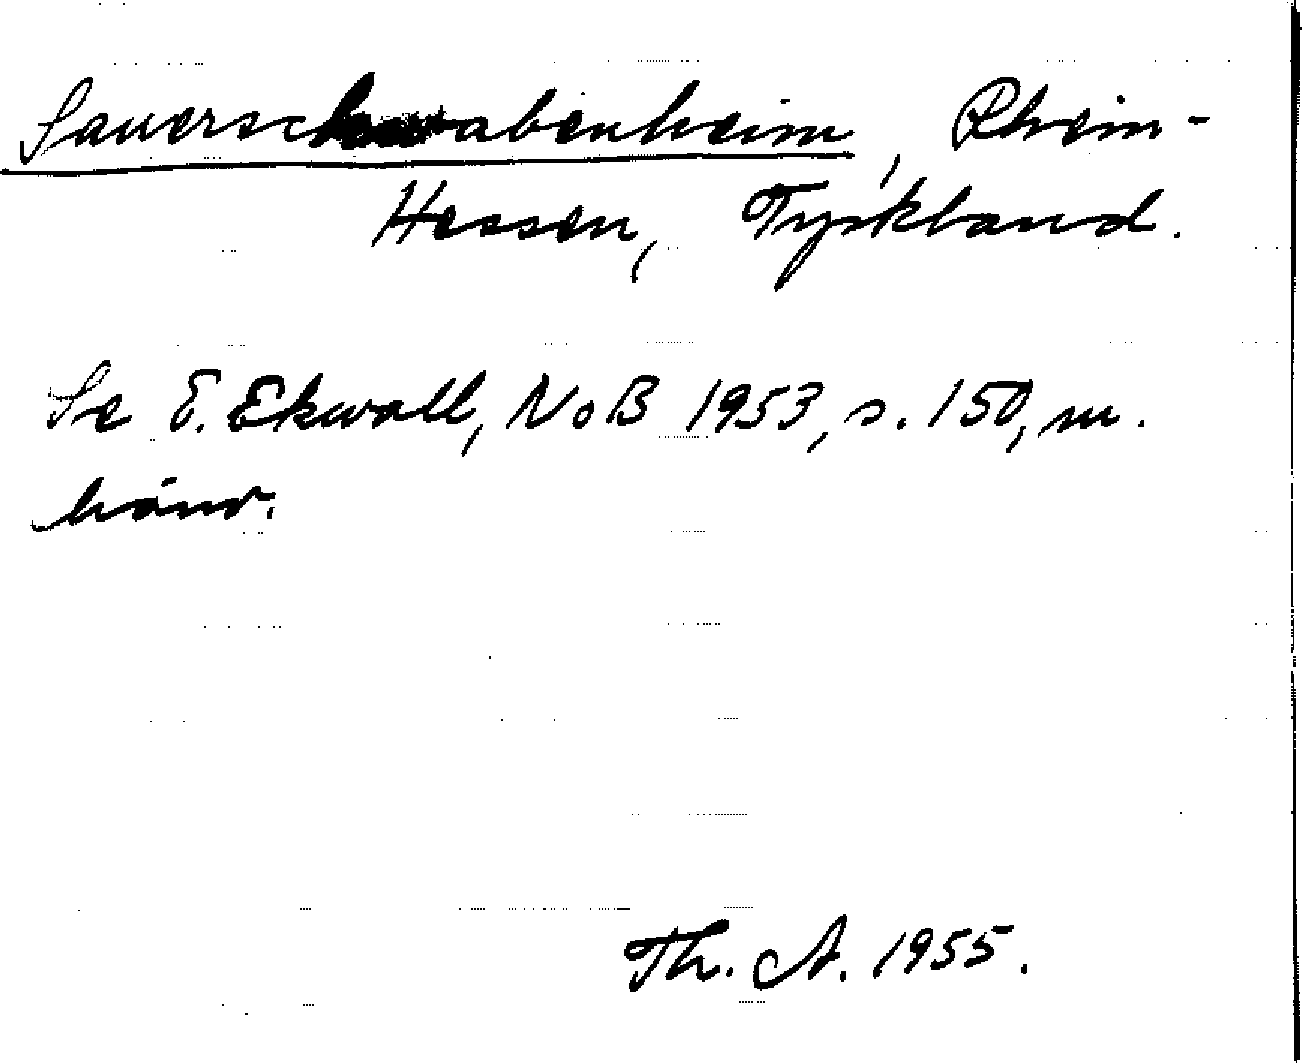 Sauerschwabenheim, Rhein-
Hessen, Tyskland.
Se E. Ekwall, NoB 1953, s. 150, m.
hänv.
Th. A. 1955.